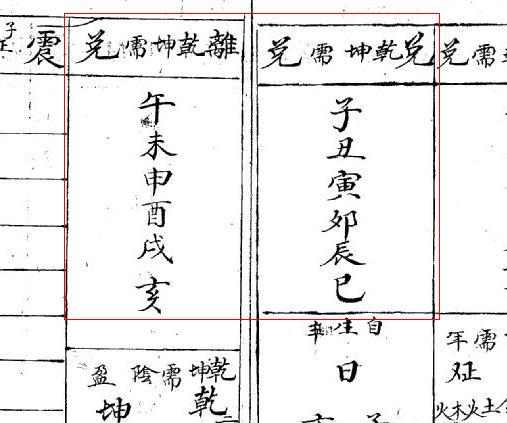 兌需
兌乾坤需兌
子丑寅卯辰巳
自生年
日
年需
火木火土
離乾坤需兌
午未申酉戌亥
乾坤需陰盈
乾
坤
震
子